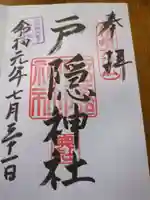 奉拝
戸隠神社
令和元年七月三十一日